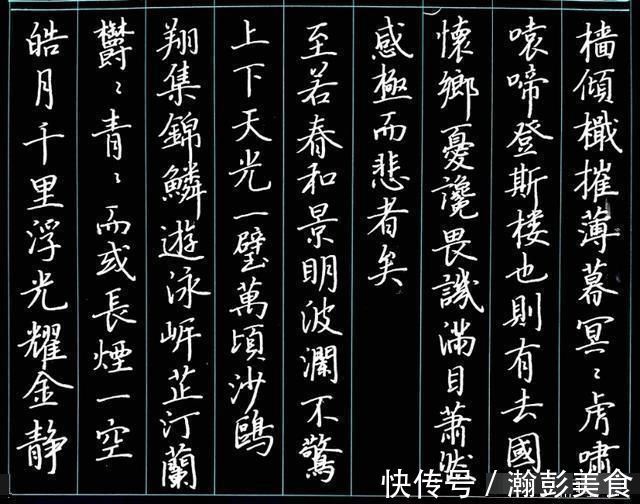 檣傾檝摧薄幕冥〻虎嘯
猿啼登斯楼也則有去國
懷鄉憂讒畏譏滿目蕭然
感極而悲者矣
至若春和景明波瀾不驚
上下天光一璧萬頃沙鷗
翔集錦鱗遊泳岸芷汀蘭
欝〻青〻而或長煙一空
皓月千里浮光耀金静
快传号/瀚彭美食